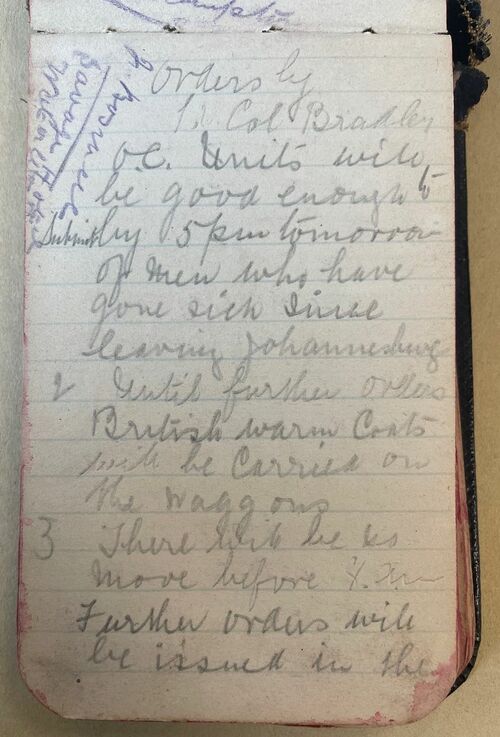 Orders by
Lt Col Bradley
O.C. Units will
be good enough to
Submit by 5pm tomorrow
of men who have
gone sick since
leaving Johannesburg
2 Until further orders
British warm Coats
will be Carried on
the waggons
3 There will be no
move before
Further orders will
be issued in the